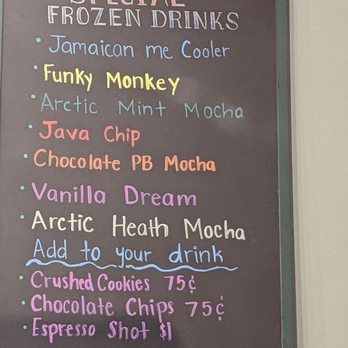 SPECIAL
FROZEN DRINKS
• Jamaican me Cooler
• Funky Monkey
• Arctic Mint Mocha
• Java Chip
• Chocolate PB Mocha
• Vanilla Dream
• Arctic Heath Mocha
Add to your drink
• Crushed Cookies 75¢
• Chocolate Chips 75¢
• Espresso Shot $1